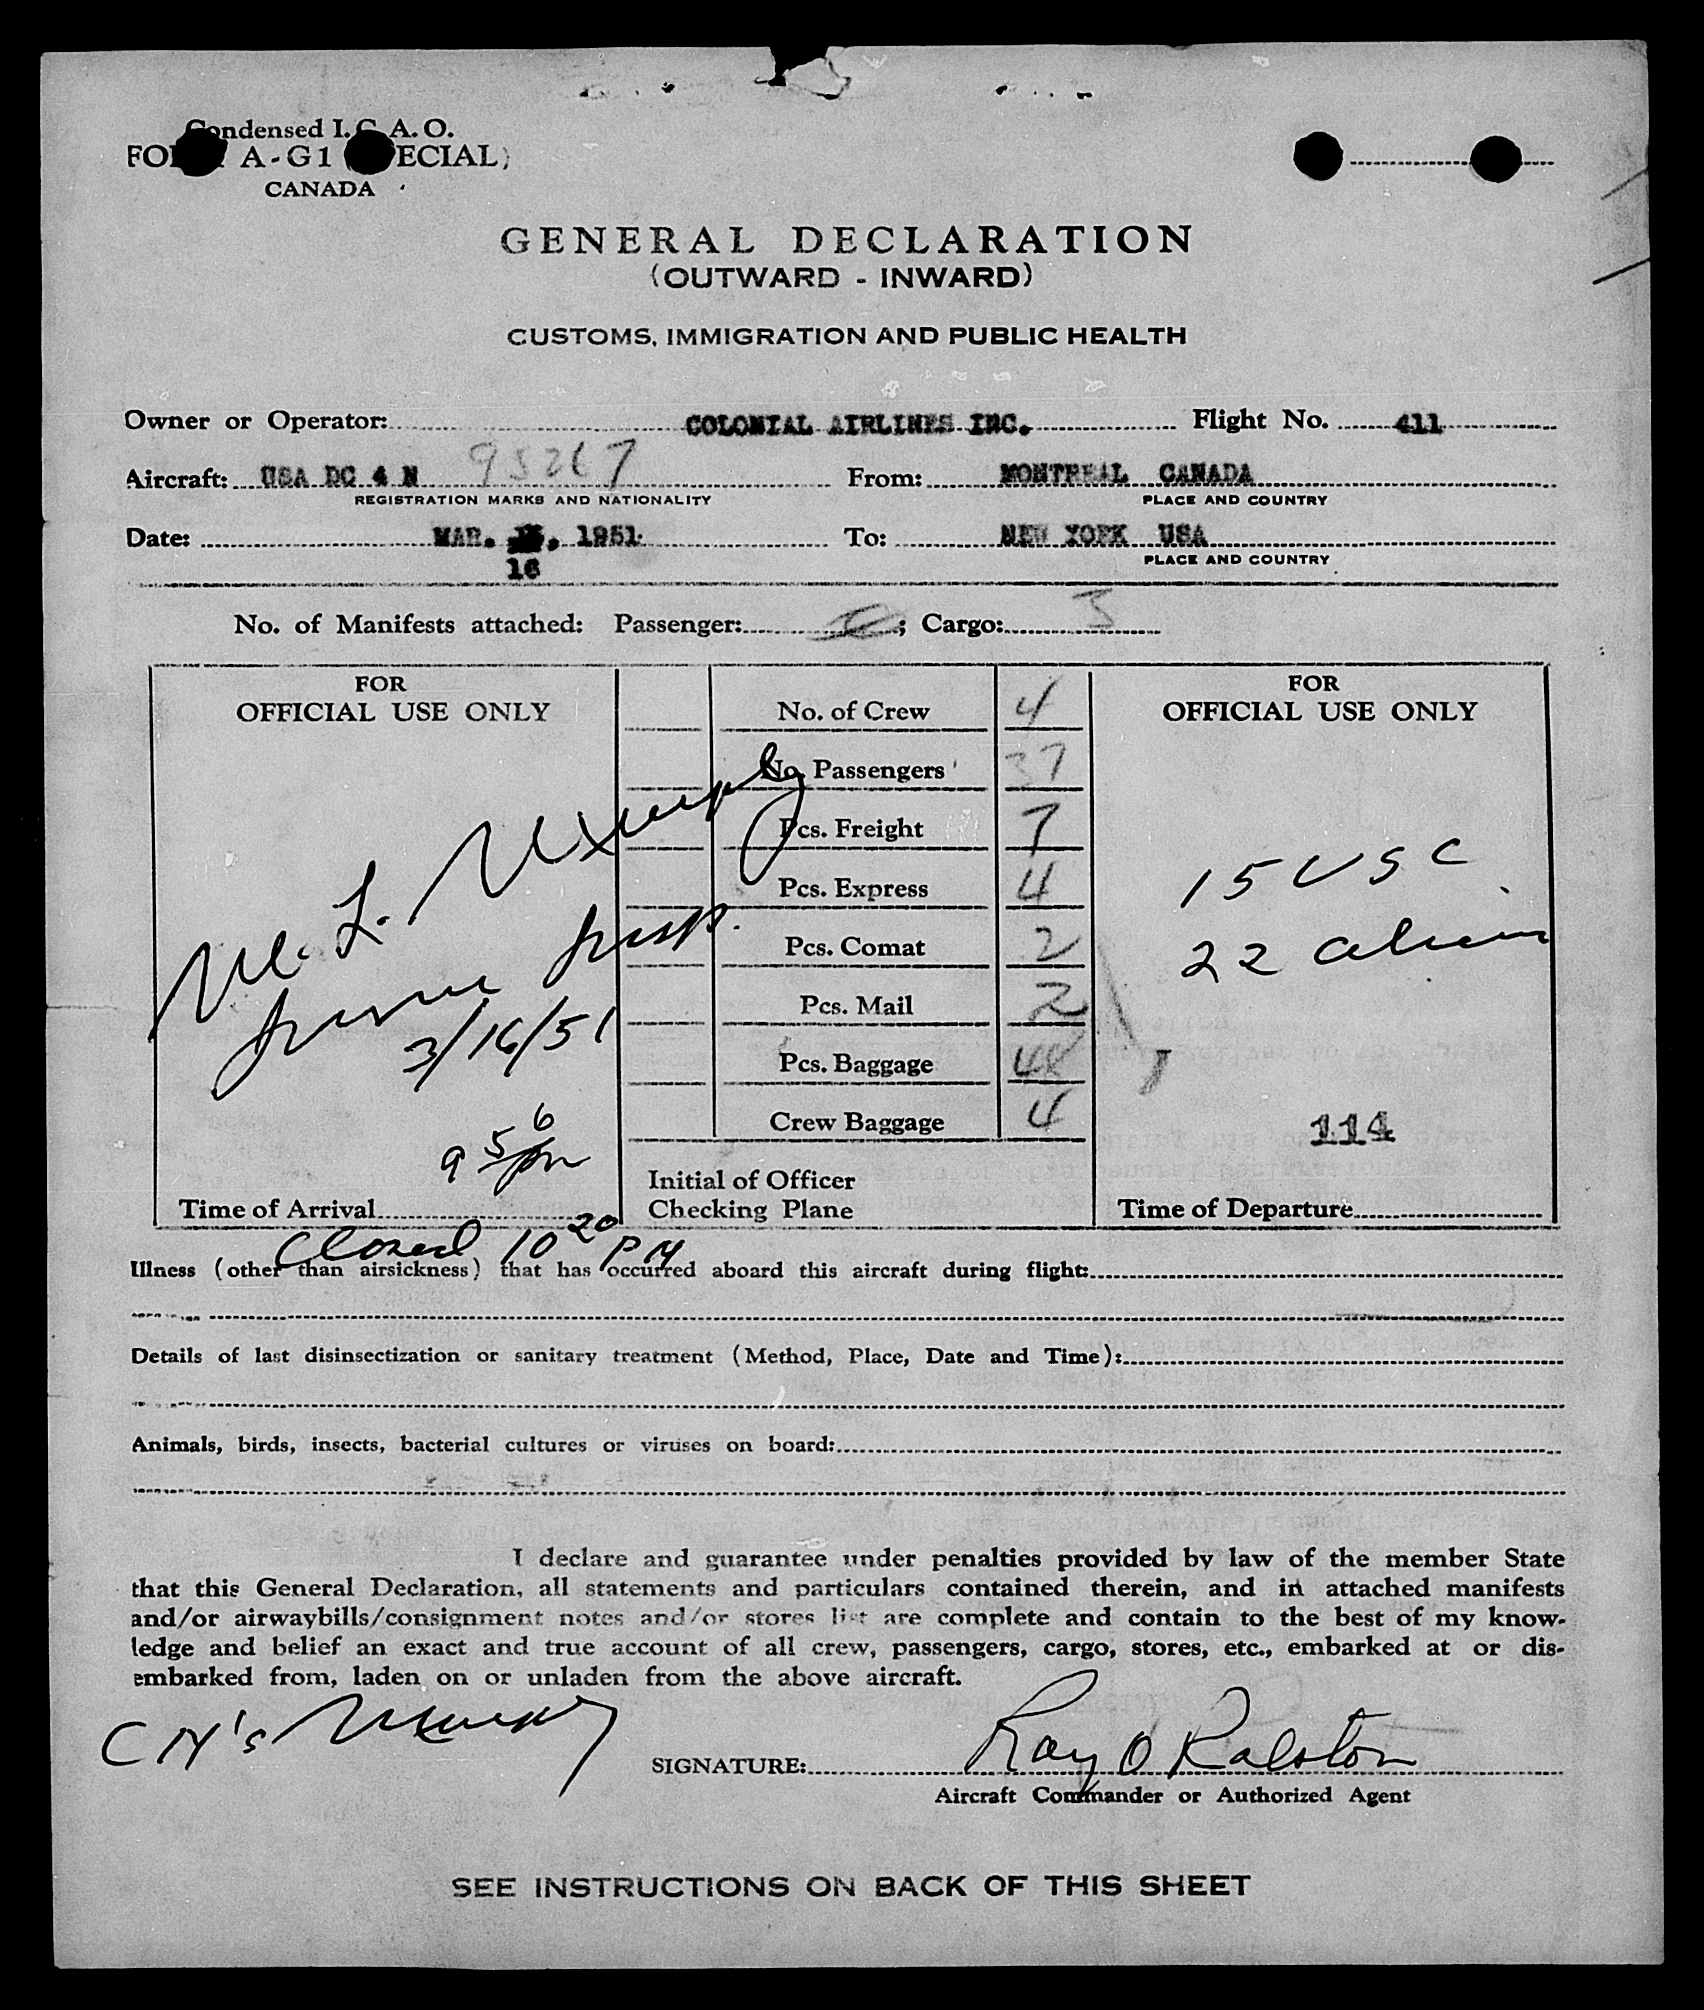 Condensed I.C.A.O.
FORM A-G1 (SPECIAL)
CANADA
GENERAL DECLARATION
(OUTWARD - INWARD)
CUSTOMS, IMMIGRATION AND PUBLIC HEALTH
Owner or Operator: COLONIAL AIRLINES INC. Flight No. 411
Aircraft: USA DC 4 N 95267 From: MONTREAL CANADA
REGISTRATION MARKS AND NATIONALITY PLACE AND COUNTRY
Date: MAR. 1951 To: NEW YORK USA
16 PLACE AND COUNTRY
No. of Manifests attached: Passenger: ; Cargo: 3
FOR
OFFICIAL USE ONLY
M. L. Murphy
Insp.
3/16/51
9 56 pm
Time of Arrival
Closed 10 20 PM
No. of Crew 4
No. Passengers 37
Pcs. Freight 7
Pcs. Express 4
Pcs. Comat 2
Pcs. Mail 2
Pcs. Baggage 48
Crew Baggage 4
Initial of Officer
Checking Plane
FOR
OFFICIAL USE ONLY
15 USC
22 aliens
114
Time of Departure
Illness (other than airsickness) that has occurred aboard this aircraft during flight:
Details of last disinsectization or sanitary treatment (Method, Place, Date and Time):
Animals, birds, insects, bacterial cultures or viruses on board:
I declare and guarantee under penalties provided by law of the member State
that this General Declaration, all statements and particulars contained therein, and in attached manifests
and/or airwaybills/consignment notes and/or stores list are complete and contain to the best of my know-
ledge and belief an exact and true account of all crew, passengers, cargo, stores, etc., embarked at or dis-
embarked from, laden on or unladen from the above aircraft.
CM's Murphy
SIGNATURE: Ray O Ralston
Aircraft Commander or Authorized Agent
SEE INSTRUCTIONS ON BACK OF THIS SHEET